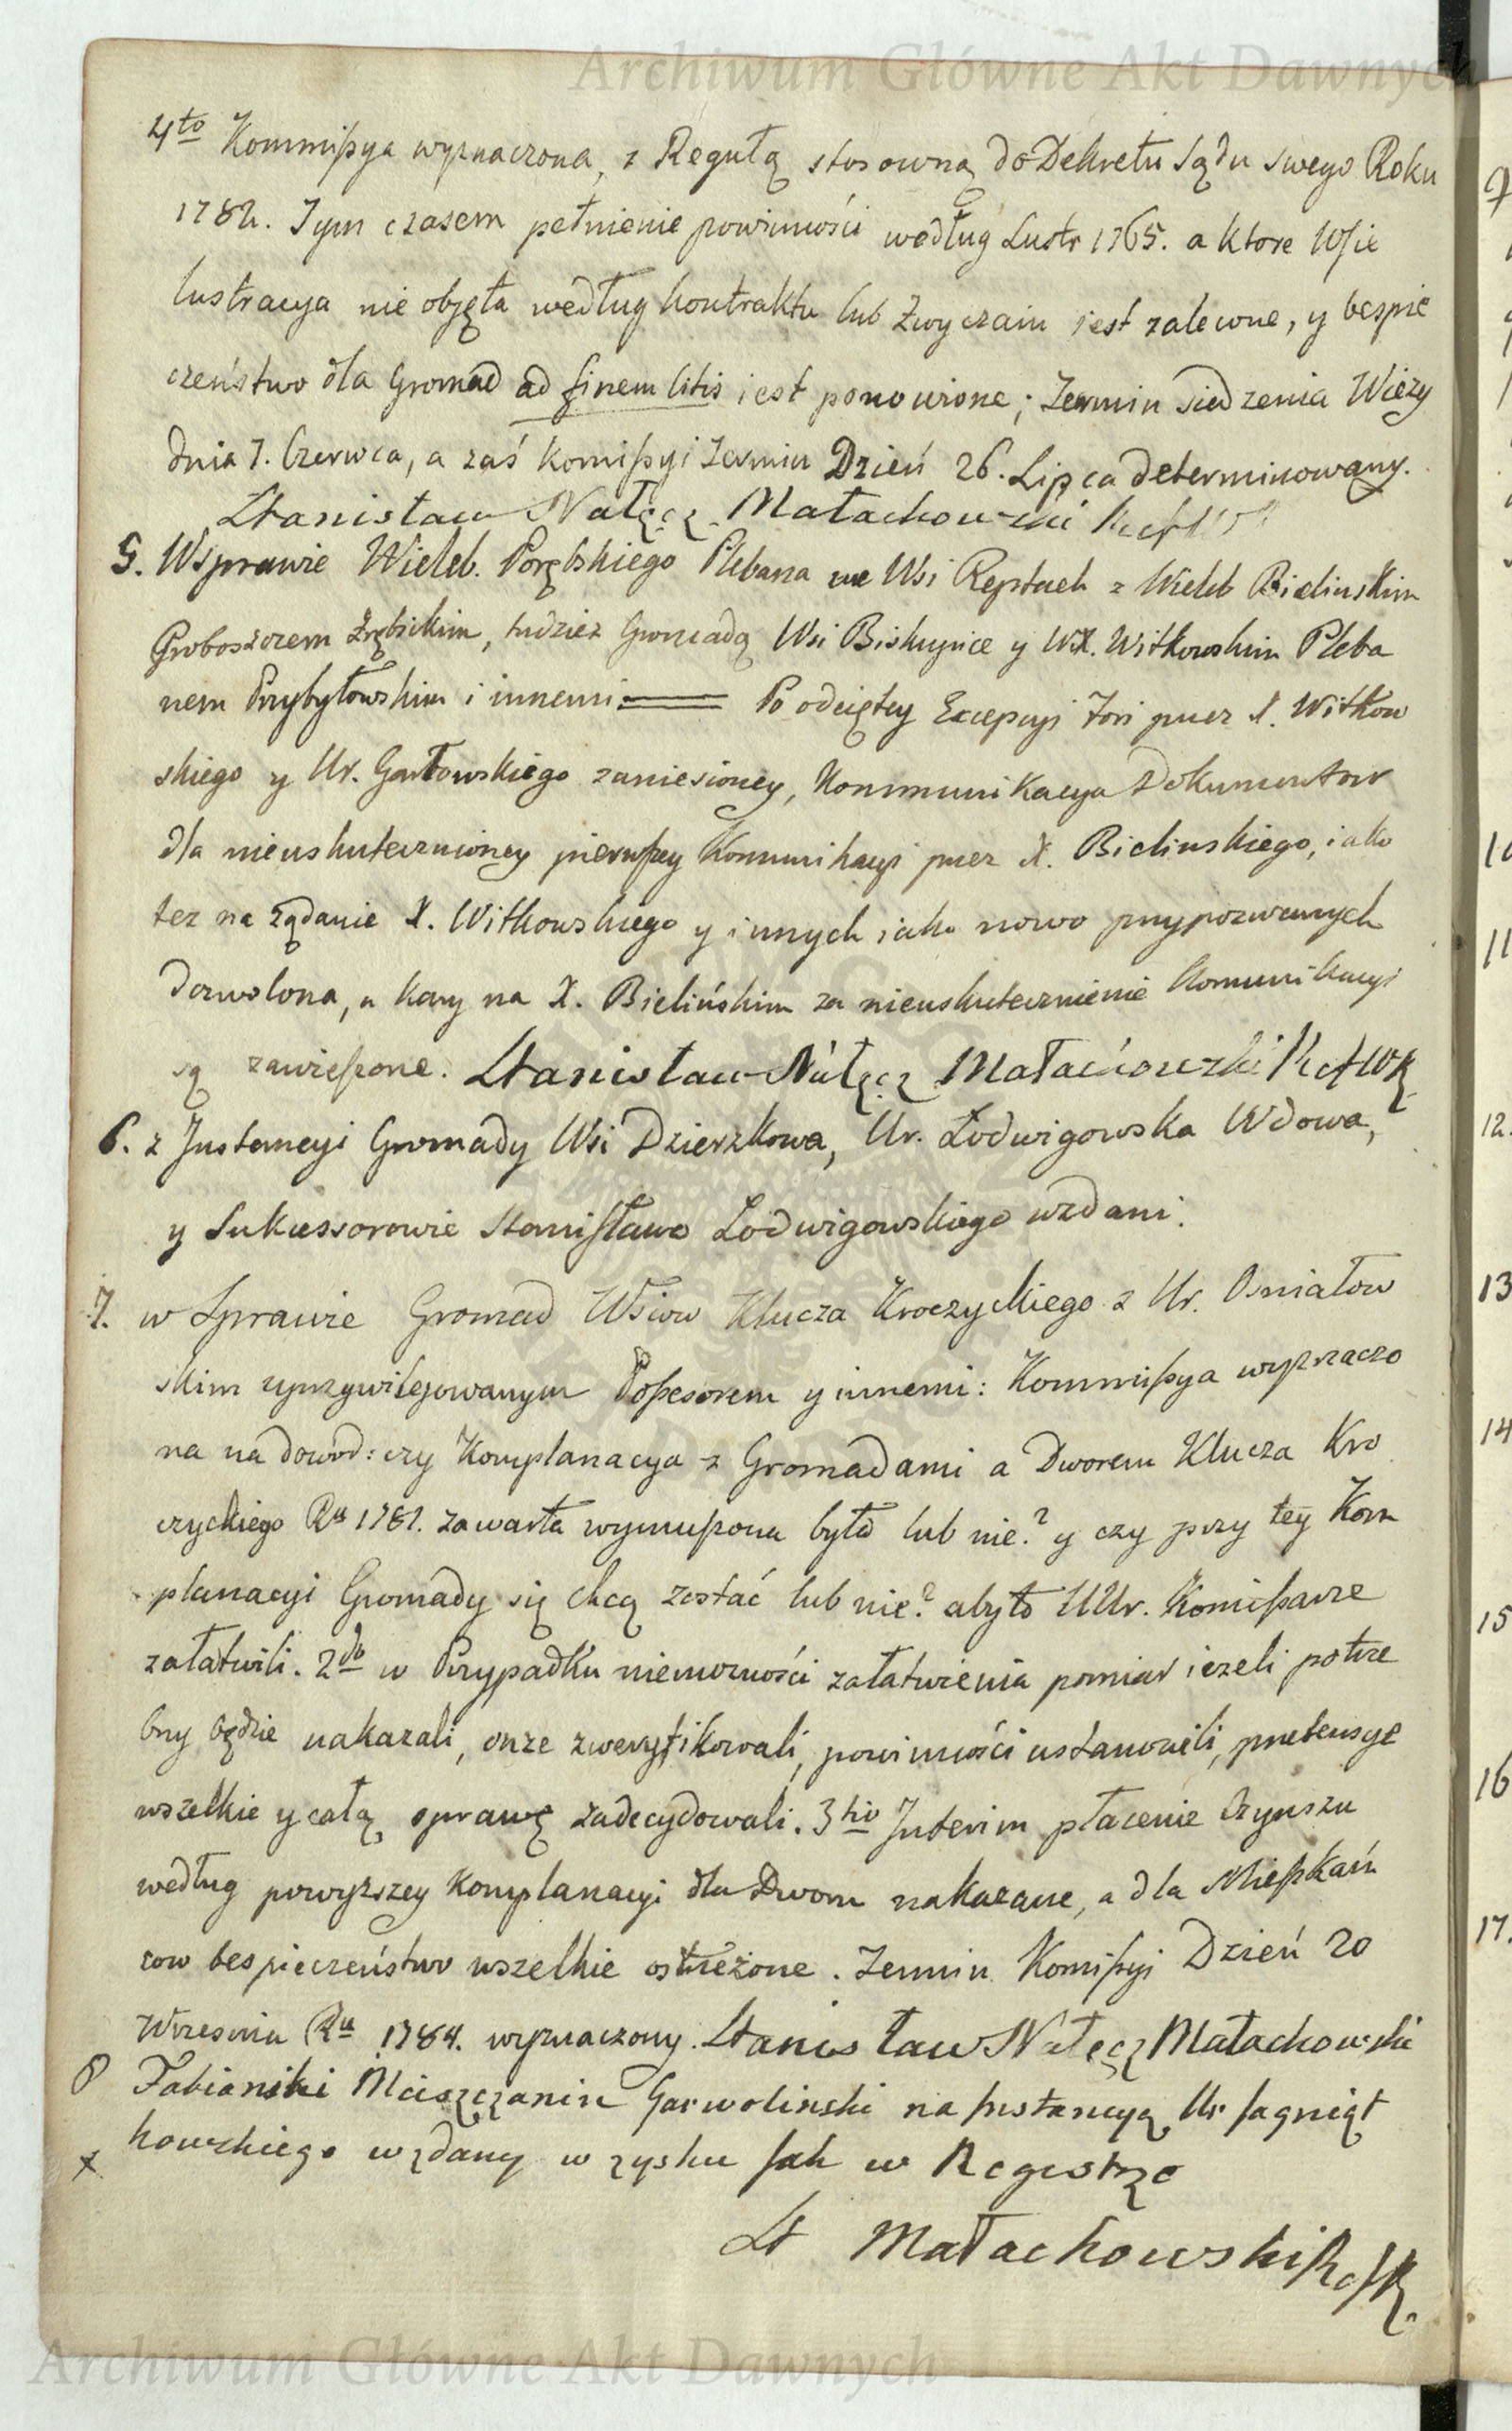 Archiwum Główne Akt Dawnych
4to Kommissya wyznaczona, z Regułą stosowną do Dekretu Sądu swego Roku
1782. Tym czasem pełnienie powinności według Lustr 1765. a ktore Wsie
lustracya nie objęta według kontraktu lub zwyczaiu iest zalecone, y bespie
czeństwo dla Gromad ad finem litis iest ponowione; Termin siedzenia Wieży
dnia 7. Czerwca, a zaś Komissyi Termin Dzień 26. Lipca determinowany.
Stanisław Nałęcz Małachowski
5. W sprawie Wieleb. Porębskiego Plebana we Wsi Reptach z Wieleb Bielinskim
Proboszczem Zrębickim, tudziez Gromadą Wsi Biskupice y WX. Witkowskim Pleba
nem Przybyłowskim i innemi == Po odciętey Excepcyi Fori przez X. Witkow
skiego y Ur. Gartowskiego zaniesioney, Kommunikacya Dokumentow
dla nieuskutecznioney pierwszey Kommunikacyi przez X. Bielinskiego, iako
tez na żądanie X. Witkowskiego y innych iako nowo przypozwanych
dozwolona, a kary na X. Bielińskim za nieuskutecznienie Komunikacyi
są zawieszone. Stanisław Nałęcz Małachowski R K W K
6. z Instancyi Gromady Wsi Dzierzkowa, Ur. Lodwigowska Wdowa,
y Sukcessorowie Stanisława Lodwigowskiego wzdani.
7. w Sprawie Gromad Wsiow Klucza Kroczyckiego z Ur. Osniałow
skim uprzywilejowanym Possesorem y innemi: Kommissya wyznaczo
na na dowod: czy Komplanacya z Gromadami a Dworem Klucza Kro
czyckiego Ru 1781. zawarta wymuszona była lub nie? y czy przy tey Kom
planacyi Gromady się chcą zostać lub nie? aby to UUr. Komissarze
załatwili. 2do w Przypadku niemozności załatwienia pomiar iezeli potrze
bny będzie nakazali, onze zweryfikowali, powinności ustanowili, pretensye
wszelkie y całą sprawę zadecydowali. 3tio Interim płacenie Czynszu
według powyższey Komplanacyi dla Dworu nakazane, a dla Mieszkań
cow bespieczeństwo wszelkie ostrzeżone. Termin Komissyi Dzień 20
Wrzesnia Ru 1784. wyznaczony. Stanisław Nałęcz Małachowski
8 Fabianski Mieszczanin Garwolinski na Instancyą Ur Jagniąt
kowskiego wzdany w zysku Jak w Regestrze
x
St Małachowski
Archiwum Główne Akt Dawnych
10
11
12.
13
14
15
16
17.